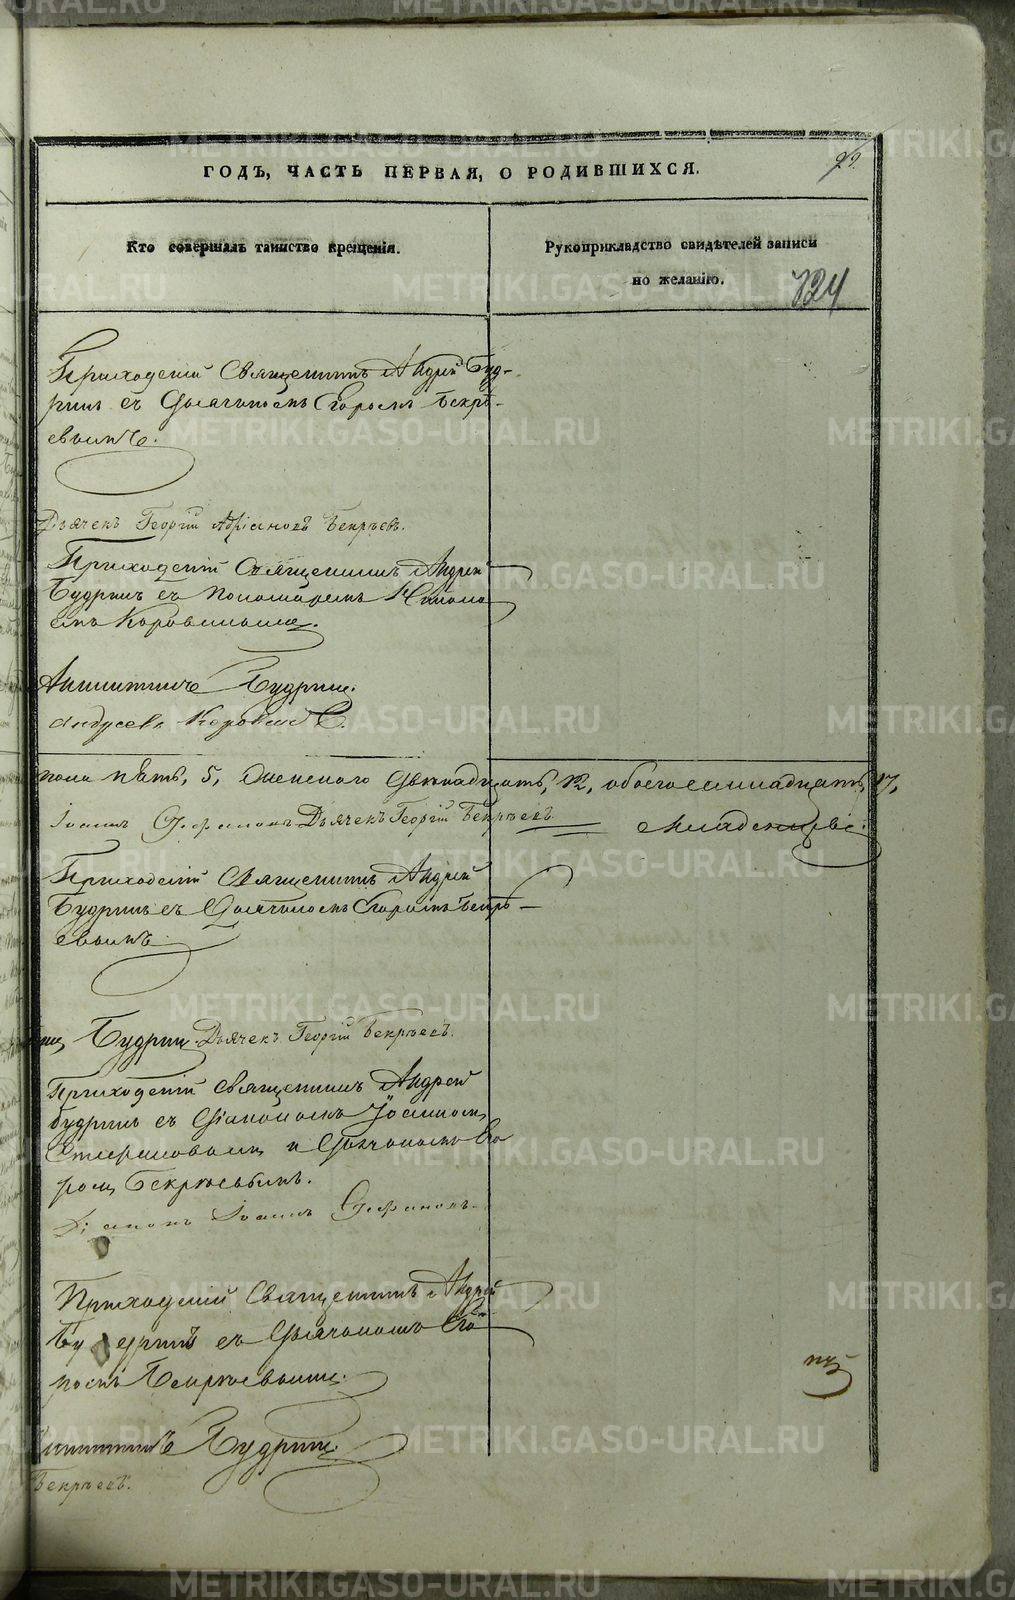 29.
ГОДЪ, ЧАСТЬ ПЕРВАЯ, О РОДИВШИХСЯ.
Кто совершалъ таинство крещенія.
Рукоприкладство свидѣтелей записи
по желанію.
124
Приходскій Священникъ Андрей Буд-
ринъ съ Дьячкомъ Егоромъ Бекрѣ-
евымъ.
Дьячекъ Георгій Бекрѣевъ.
Приходскій Священникъ Андрей
Будринъ съ Пономаремъ
Коровиным.
Будрин.
пола пять, 5, Женскаго двѣнадцать, 12, обоего семнадцать, 17,
Іоаннъ Стефановъ Дьячекъ Георгій Бекрѣевъ
младенцевъ.
Приходскій Священникъ Андрей
Будринъ съ Дьячкомъ Егоромъ Бекрѣ-
евымъ
Будрин Дьячекъ Георгій Бекрѣевъ.
Приходскій Священникъ Андрей
Будринъ съ Діакономъ Іоанном
Стефановым и Дьячкомъ Его
ром Бекрѣевымъ.
Діаконъ Іоаннъ Стефановъ.
Приходскій Священникъ Андрей
Будринъ съ Дьячкомъ Его
Будрин.
Бекрѣевъ.
METRIKI.GASO-URAL.RU